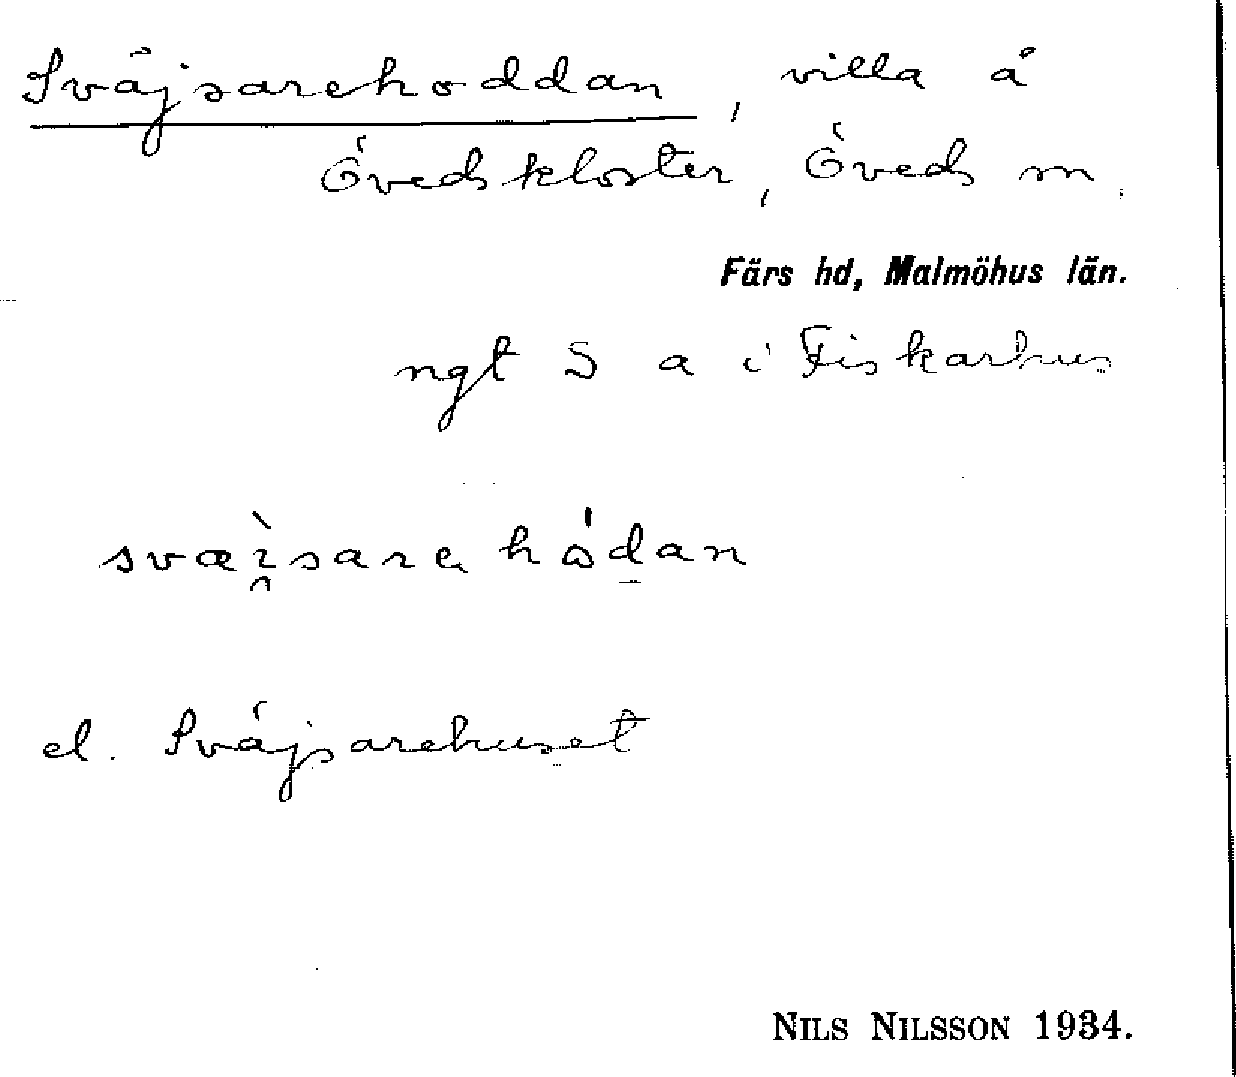 Sväjsarehoddan, villa å
Övedskloster, Öveds m.
Färs hd, Malmöhus län.
ngt S a i Fiskarhus
el. Sväjsarehuset
NILS NILSSON 1934.